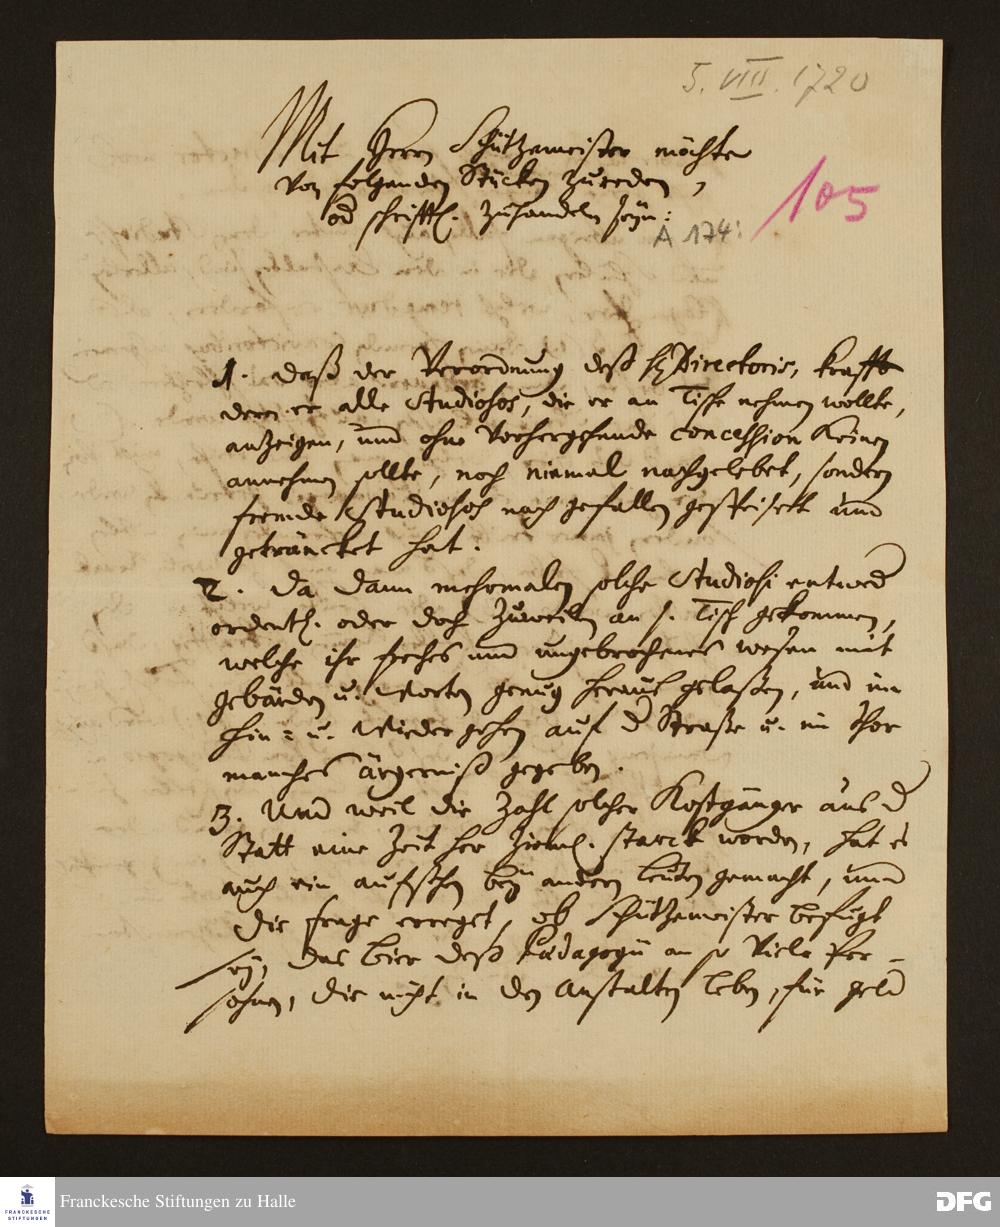 5. VIII. 1720
Mit Herrn Schützemeister möchte
von folgenden Stücken zu reden,
od schrifftl. zuhandeln seyn:
105
A 174:
1. daß der Verordnung deß H. Directoris, krafft
deren er alle Studiosos, die er an Tisch nehmen wollte,
anzeigen, und ohne vorhergehende concession keinen
annehmen sollte, noch niemal nachgelebet, sondern
fremde Studiosos nach gefallen gespeiset und
geträncket hat.
2. Da dann mehrmalen solche Studiosi entwed
ordentl. oder doch zuweilen an s. Tisch gekommen,
welche ihr freches und ungebrochenes wesen mit
gebärden u. Worten genug heraus gelaßen, und im
hin= u. Wieder gehen auf d Straße u. im Thor
manches ärgerniß gegeben.
3. Und weil die Zahl solcher Kostgänger aus d
Statt eine Zeit her zieml. starck worden, hat es
auch ein aufsehen bey andern leuten gemacht, und
die frage erreget, ob Schützemeister befugt
sey, das bier deß Pädagogii an so viele Per-
sohnen, die nicht in den Anstalten leben, für geld
FRANCKESCHE
STIFTUNGEN
Franckesche Stiftungen zu Halle
DFG